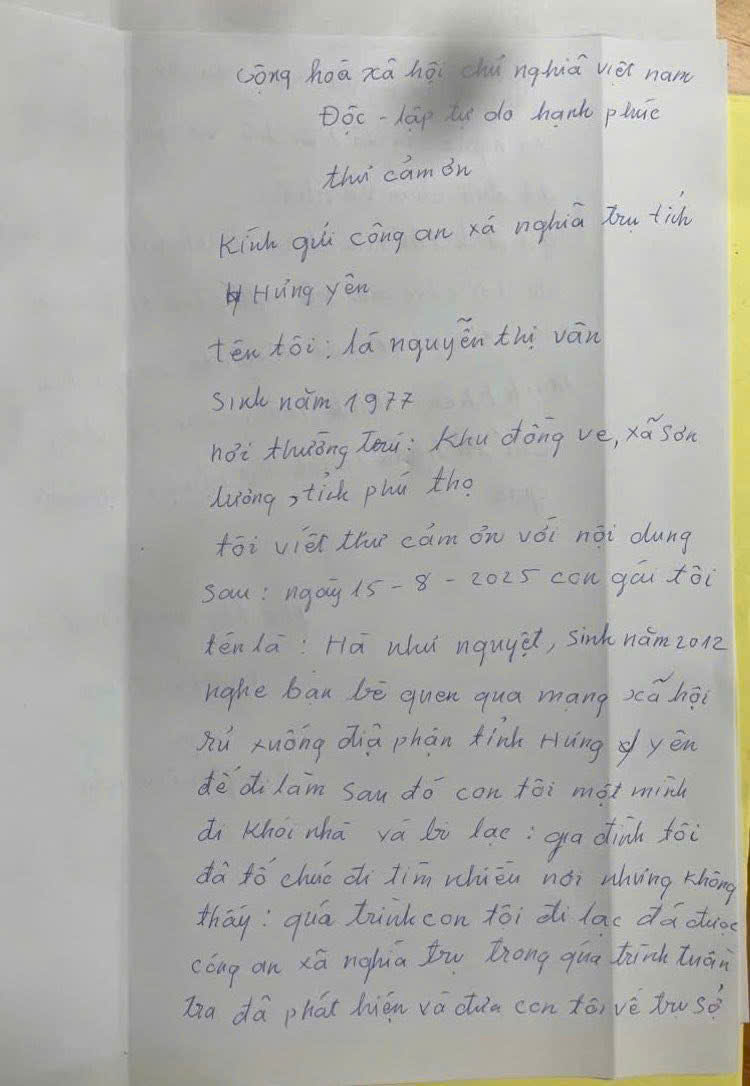 Cộng hoà xã hội chủ nghĩa việt nam
Độc - lập tự do hạnh phúc
thư cảm ơn
Kính gửi công an xã nghĩa trụ tỉnh
Hưng yên
tên tôi: là nguyễn thị vân
sinh năm 1977
nơi thường trú: Khu đồng ve, xã sơn
lương, tỉnh phú thọ
tôi viết thư cảm ơn với nội dung
sau: ngày 15-8-2025 con gái tôi
tên là: Hà như nguyệt, sinh năm 2012
nghe bạn bè quen qua mạng xã hội
rủ xuống địa phận tỉnh Hưng yên
để đi làm sau đó con tôi một mình
đi khỏi nhà và bị lạc: gia đình tôi
đã tổ chức đi tìm nhiều nơi nhưng không
thấy: quá trình con tôi đi lạc đã được
công an xã nghĩa trụ trong quá trình tuần
tra đã phát hiện và đưa con tôi về trụ sở